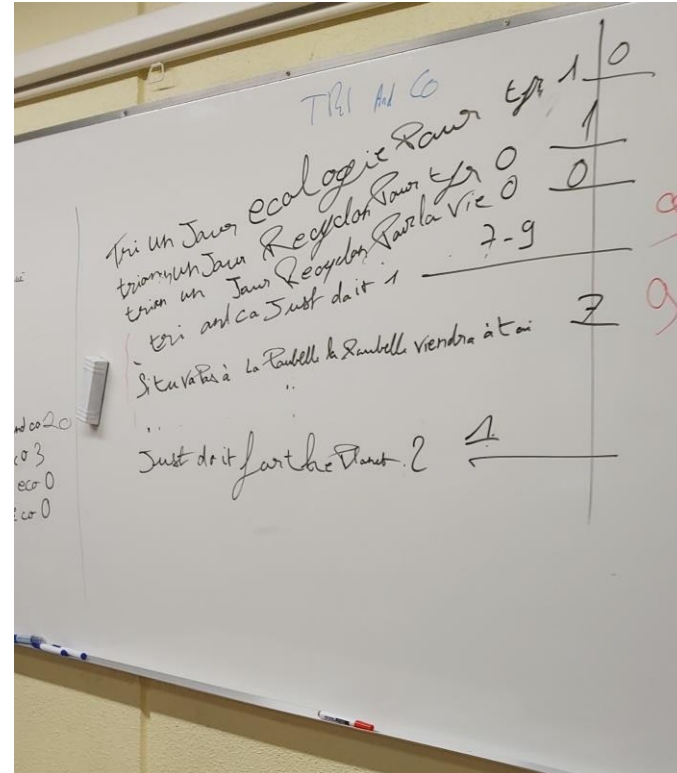 TRI And Co
Tri un Jour ecologie Pour tjr 1 0
trions un Jour Recyclon Pour tjr 0 1
trion un Jour Recyclon Pour la Vie 0 0
tri and co Just do it 1 7-9
Si tu va Pas à la Poubelle la Poubelle viendra à toi 7
Just do it for the Planet. 2 1
9
9
nd co 20
co 3
eco 0
co 0